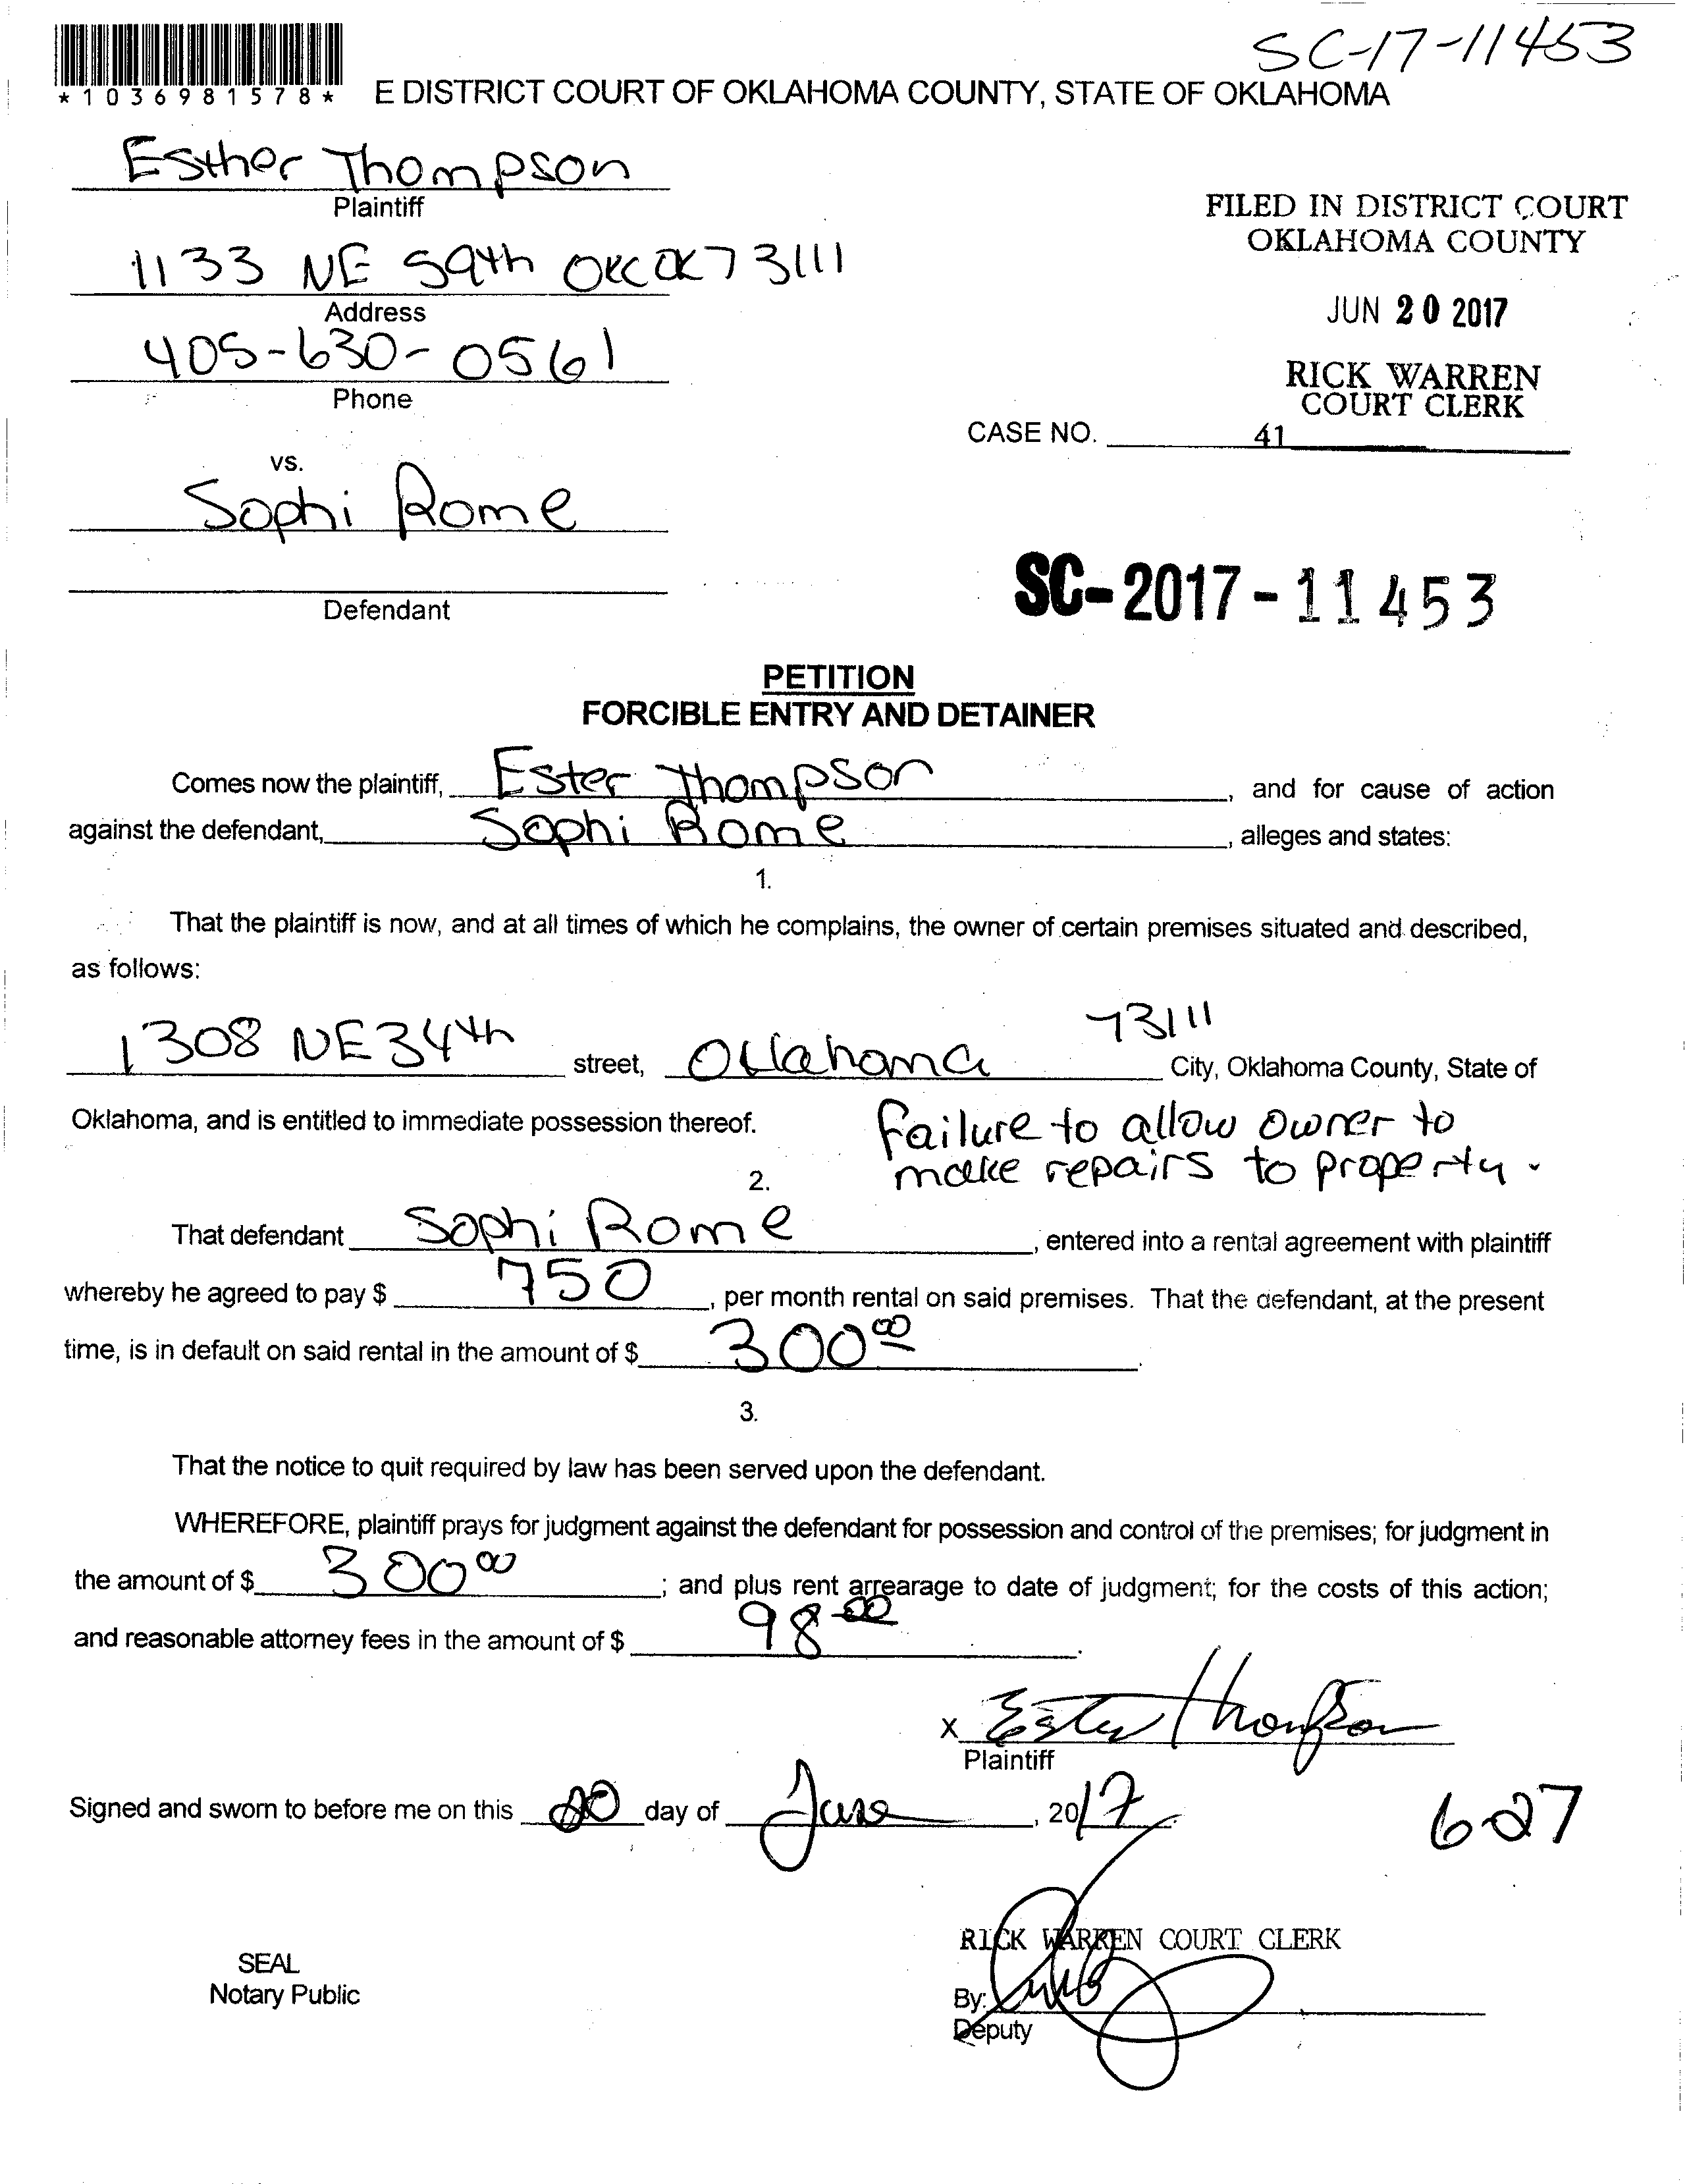 SC-17-11453
*1036981578*
E DISTRICT COURT OF OKLAHOMA COUNTY, STATE OF OKLAHOMA
Esther Thompson
Plaintiff
FILED IN DISTRICT COURT
OKLAHOMA COUNTY
1133 NE 59th OKC OK 73111
Address
JUN 20 2017
405-630-0561
Phone
RICK WARREN
COURT CLERK
CASE NO. 41
vs.
Sophi Rome
Defendant
SC-2017-11453
PETITION
FORCIBLE ENTRY AND DETAINER
Comes now the plaintiff, Ester Thompson, and for cause of action
against the defendant, Sophi Rome, alleges and states:
1.
That the plaintiff is now, and at all times of which he complains, the owner of certain premises situated and described,
as follows:
73111
1308 NE 34th street, Oklahoma City, Oklahoma County, State of
Oklahoma, and is entitled to immediate possession thereof.
Failure to allow owner to
make repairs to property.
2.
That defendant Sophi Rome, entered into a rental agreement with plaintiff
whereby he agreed to pay $ 750, per month rental on said premises. That the defendant, at the present
time, is in default on said rental in the amount of $ 300 00.
3.
That the notice to quit required by law has been served upon the defendant.
WHEREFORE, plaintiff prays for judgment against the defendant for possession and control of the premises; for judgment in
the amount of $ 300 00; and plus rent arrearage to date of judgment; for the costs of this action;
and reasonable attorney fees in the amount of $ 98 00.
x Ester Thompson
Plaintiff
Signed and sworn to before me on this 20 day of June, 2017
6-27
RICK WARREN COURT CLERK
SEAL
Notary Public
By:
Deputy